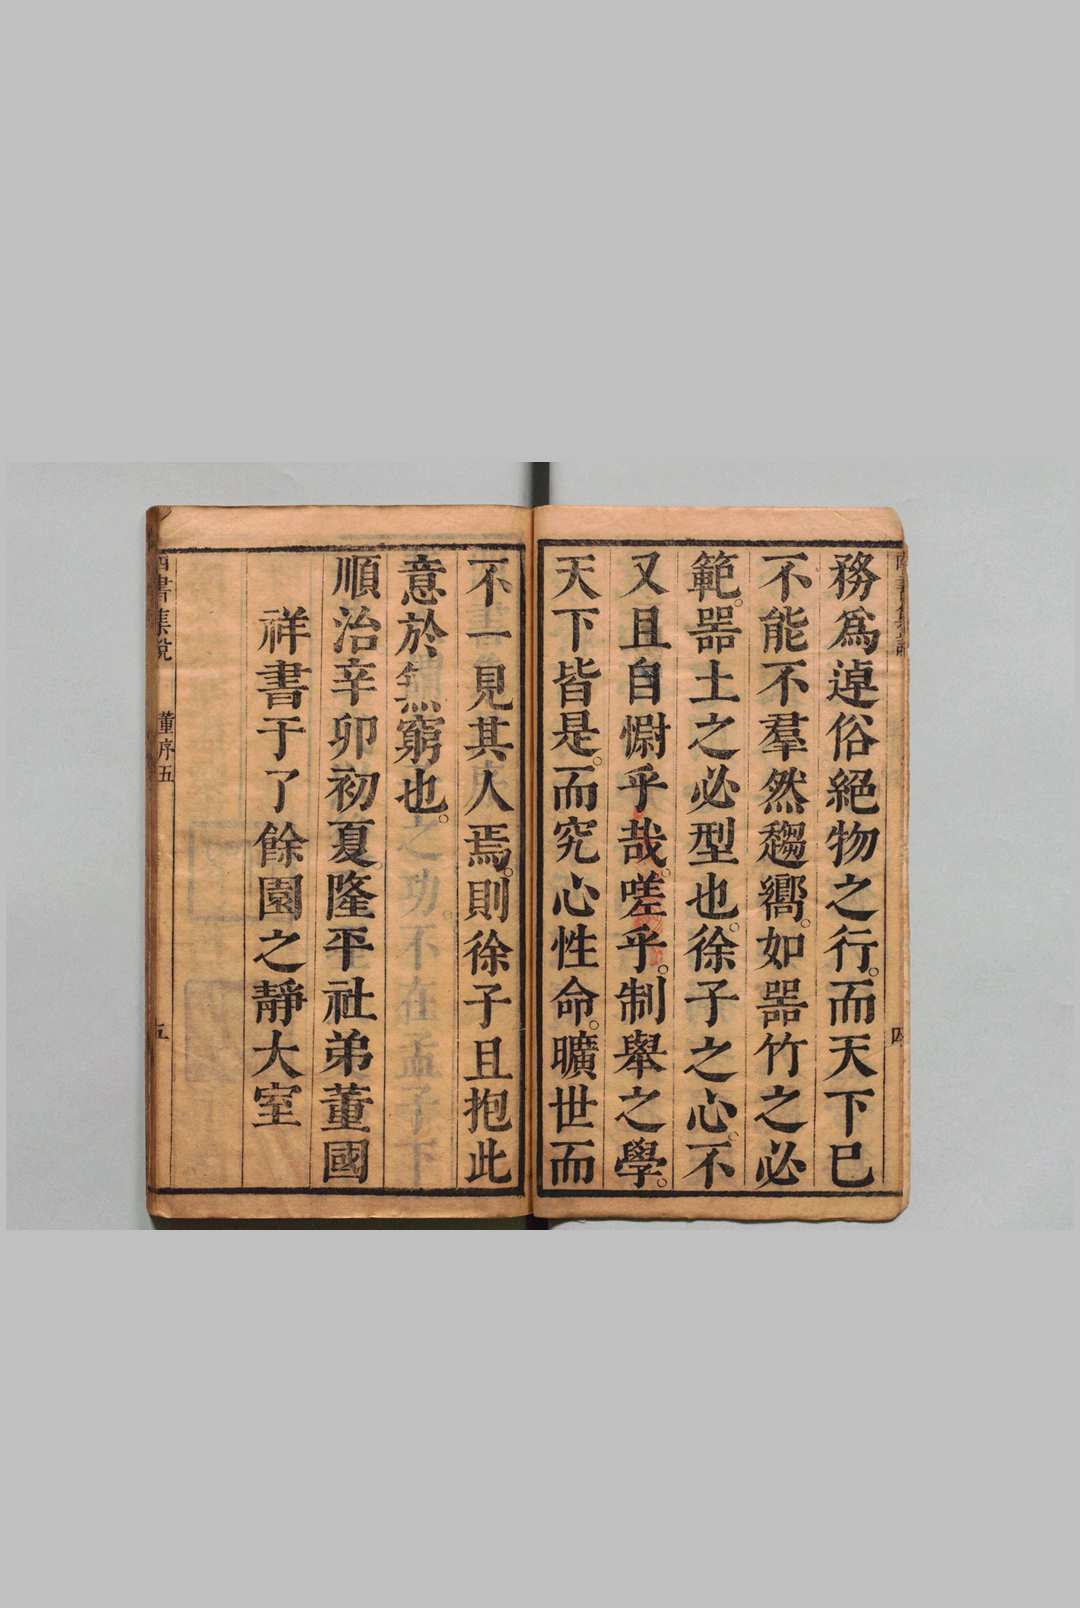 務爲逴俗絕物之行。而天下已
不能不羣然趨嚮。如噐竹之必
範。噐土之必型也。徐子之心。不
又且自懰乎哉。嗟乎。制舉之學。
天下皆是。而究心性命。曠世而
不一見其人焉。則徐子且抱此
意於無窮也。
順治辛卯初夏。隆平社弟董國
祥書于了餘園之靜大室
四書集說 董序五 五